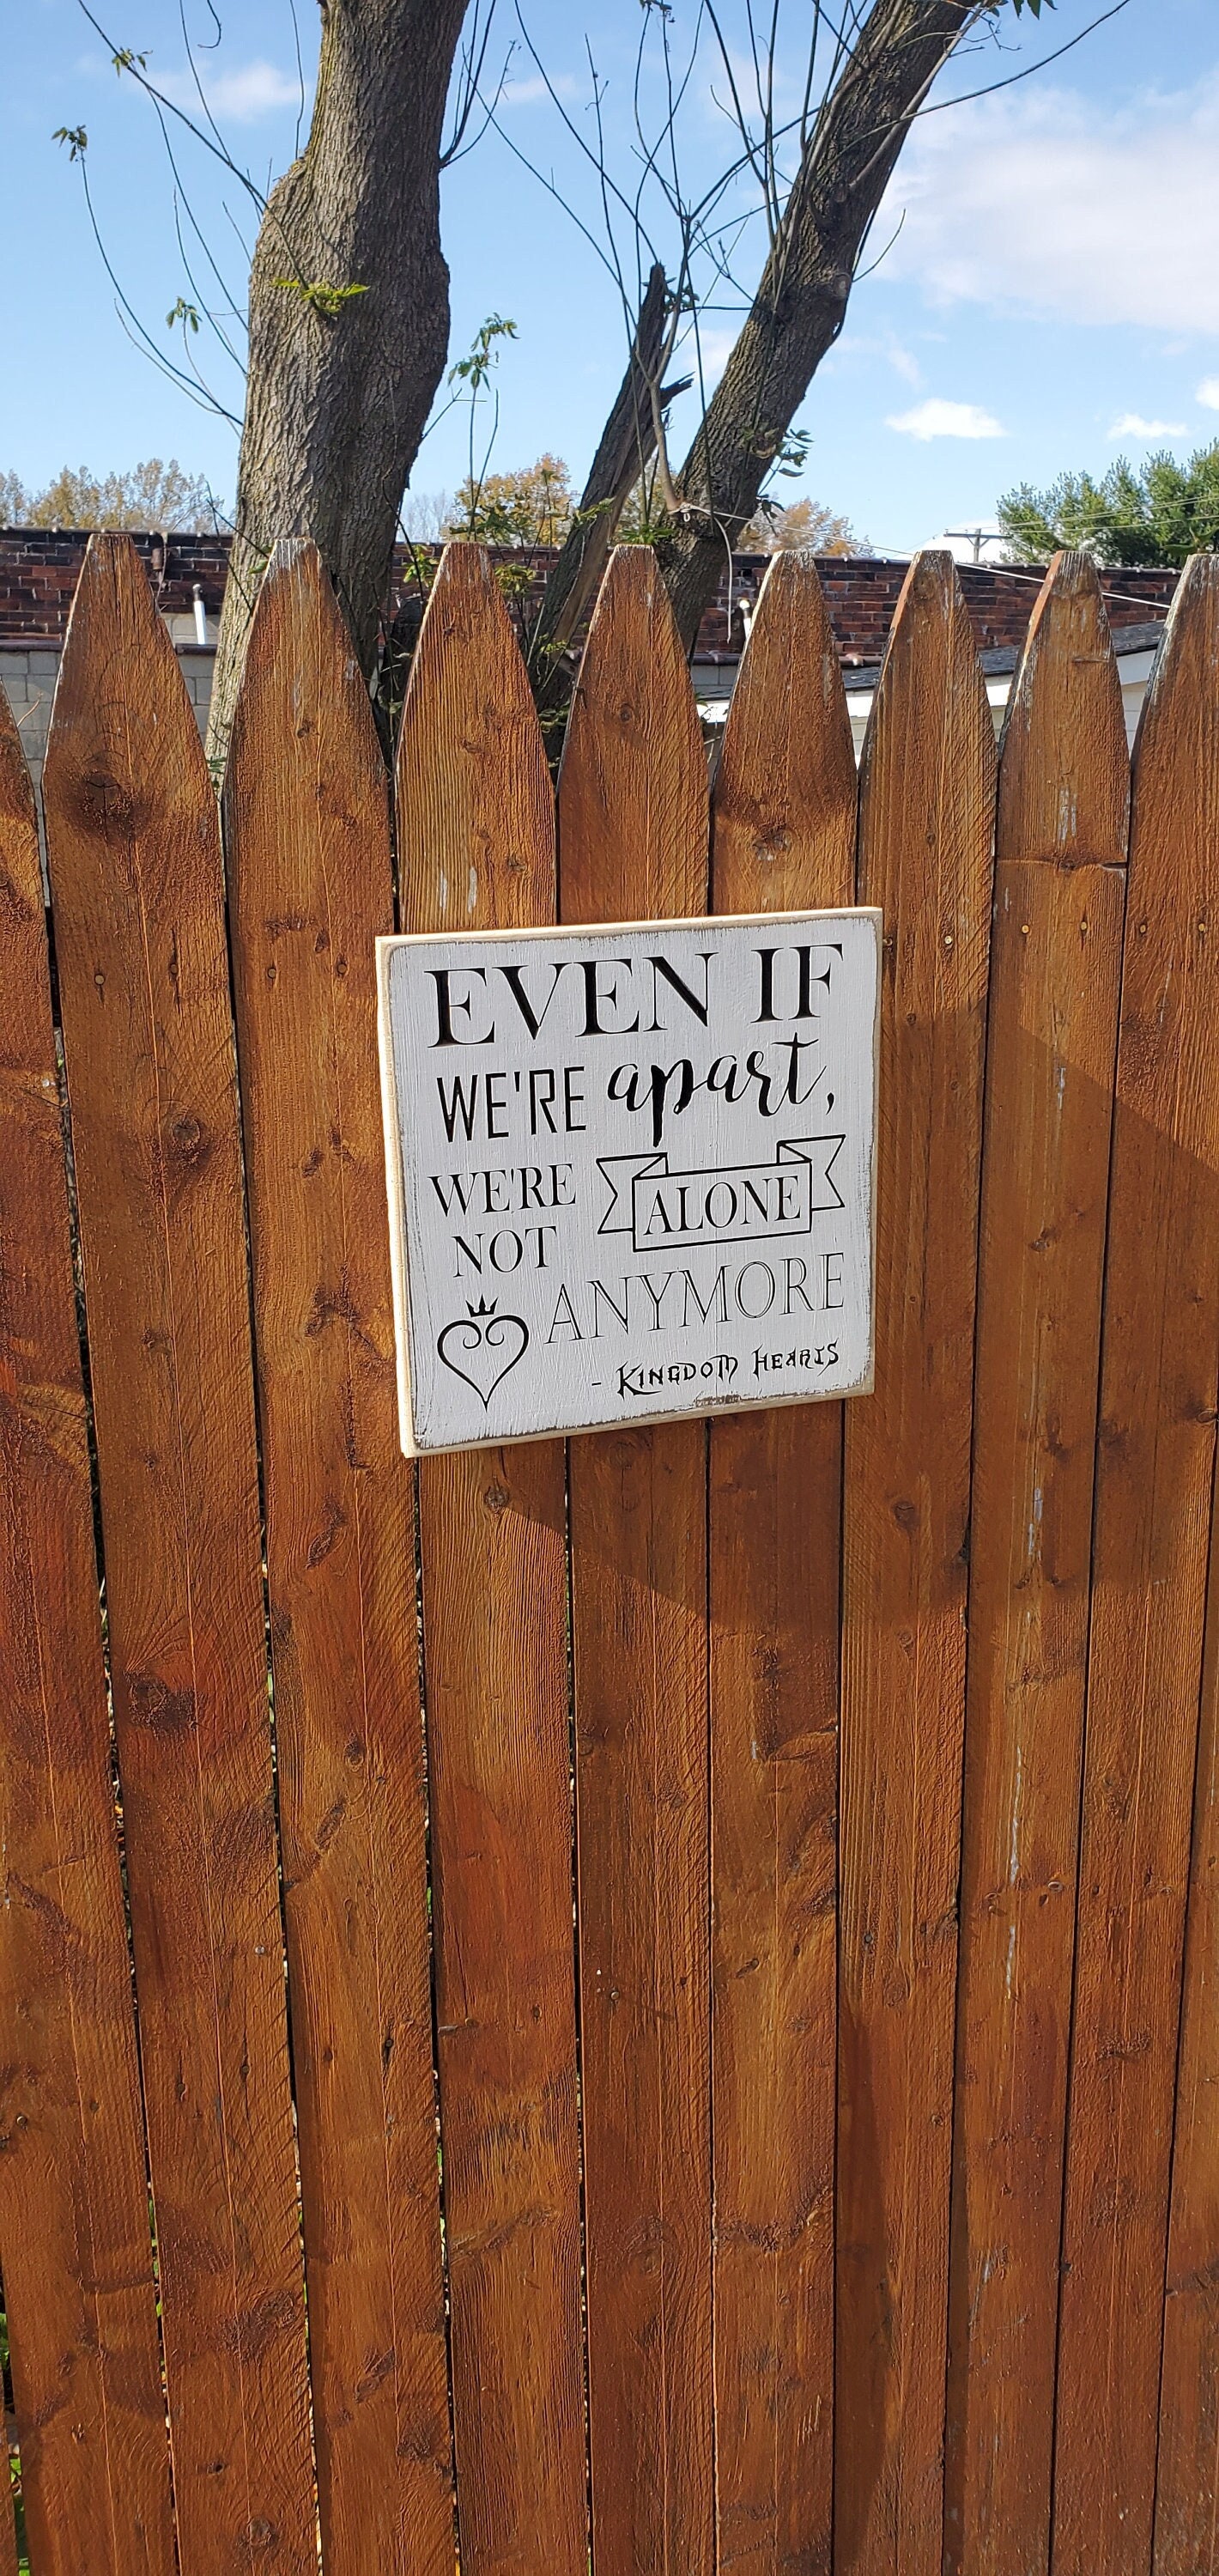 EVEN IF
WE'RE apart,
WE'RE
NOT ALONE
ANYMORE
- KINGDOM HEARTS